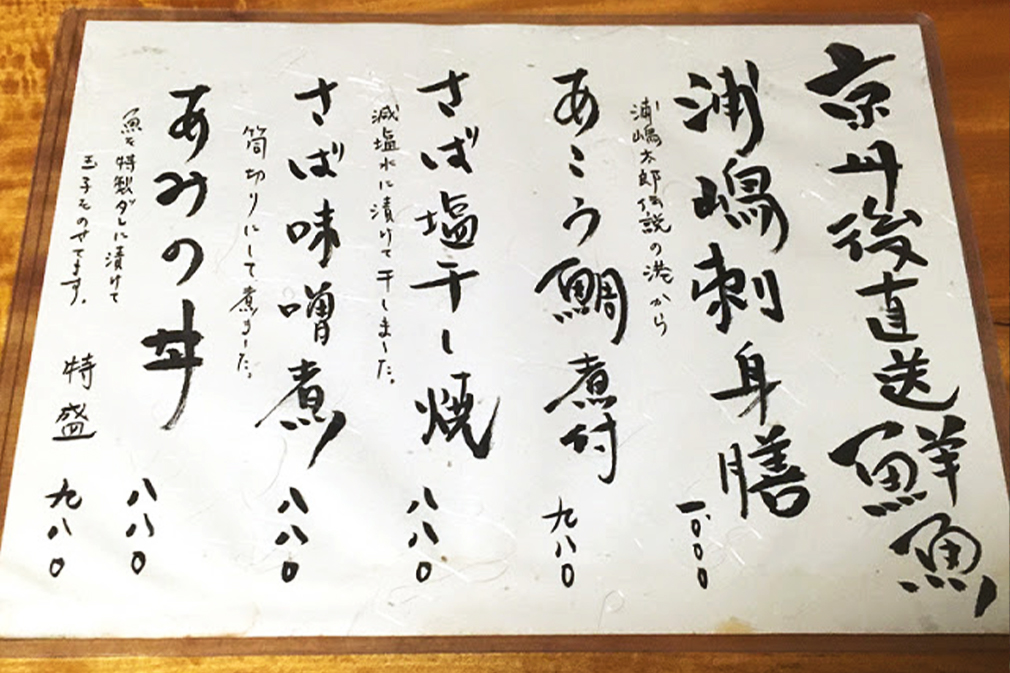 京丹後直送鮮魚
浦嶋刺身膳 一、〇〇〇
浦嶋太郎伝説の港から
あこう鯛煮付 九八〇
さば塩干し焼 八八〇
減塩水に漬けて干しました。
さば味噌煮 八八〇
筒切りにして煮ました。
あみの丼 八八〇
魚を特製ダレに漬けて
玉子をのせてます。
特盛 九八〇